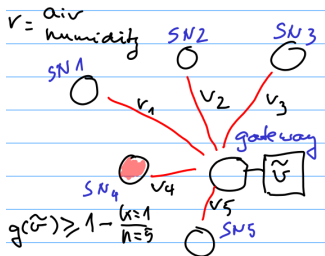 v = air
humidity
SN2
SN3
SN1
v1
v2
v3
gateway
ṽ
SN4
v4
v5
g(ṽ) ≥ 1 - k=1/n=5
SN5